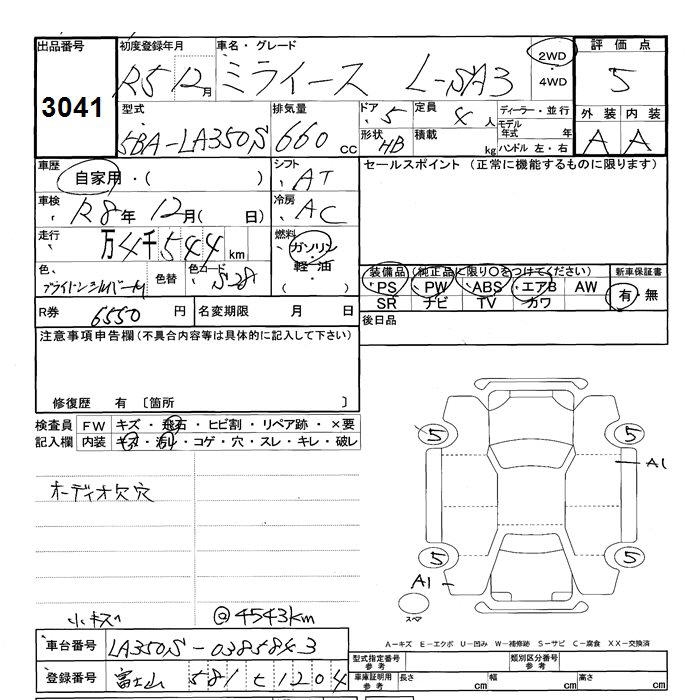 出品番号
3041
初度登録年月
R5 12月
車名・グレード
ミライース L-SA3
2WD
・
4WD
評価点
5
外装 内装
A A
型式
5BA-LA350S
排気量
660 cc
ドア
5
定員
4 人
形状
HB
積載
kg
ディーラー・並行
モデル年式 年
ハンドル 左・右
車歴
自家用・( )
シフト
AT
セールスポイント (正常に機能するものに限ります)
車検
R8年 12月( 日)
冷房
AC
走行
万4千544km
燃料
ガソリン
軽油
・( )
色
ブライトシルバーM
色替
色コード
S28
装備品 (純正品に限り〇をつけてください)
PS PW ABS エアB AW
SR ナビ TV カワ
新車保証書
有・無
R券 6550 円
名変期限 月 日
後日品
注意事項申告欄(不具合内容等は具体的に記入して下さい)
修復歴 有 〔箇所 〕
検査員記入欄
FW キズ・飛石・ヒビ割・リペア跡・×要
内装 キズ・汚れ・コゲ・穴・スレ・キレ・破レ
オーディオ欠穴
小キズ
@4543km
5 5
A1
5 5
A1
スペア
A-キズ E-エクボ U-凹み W-補修跡 S-サビ C-腐食 XX-交換済
車台番号 LA350S-0385843
登録番号 富士山 581 せ 1204
型式指定番号 参考
類別区分番号 参考
車庫証明用 参考
長さ cm 幅 cm 高さ cm